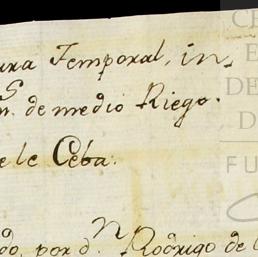 ura Temporal, in-
n. de medio Riego.
e le Ceba.
do, por d.n Rodrigo de l
CE
E
DE
D
FU